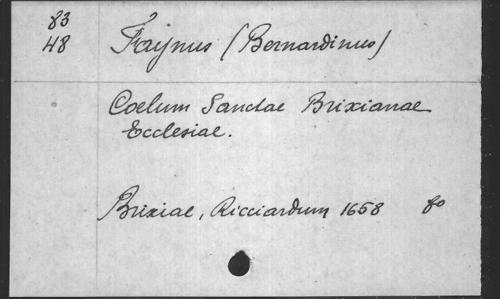 83
48
Faÿnus (Bernardinus)
Coelum Sanctae Brixianae
Ecclesiae.
Brixiae, Ricciardum 1658 fo